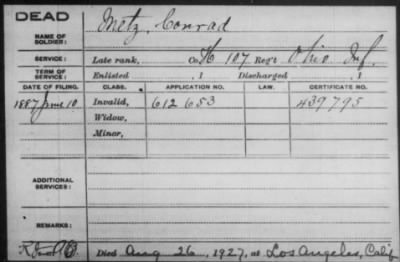 DEAD
NAME OF SOLDIER: Metz, Conrad
SERVICE: Late rank, Co. H 107 Reg't Ohio Inf.
TERM OF SERVICE: Enlisted , 1 Discharged , 1
DATE OF FILING. CLASS. APPLICATION NO. LAW. CERTIFICATE NO.
1887 June 10 Invalid, 612653 439795
Widow,
Minor,
ADDITIONAL SERVICES:
REMARKS:
Died Aug 26, 1927, at Los Angeles, Calif